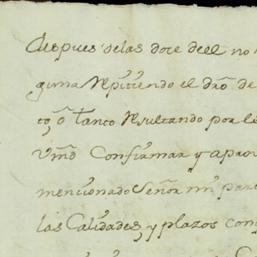 despues delas doce deel no
guma Repitiendo el dro de
to, o tanto Resultando por le
Vmd Confirmar y aprov
mencionado Señor mi part
las Calidades, y plazos con